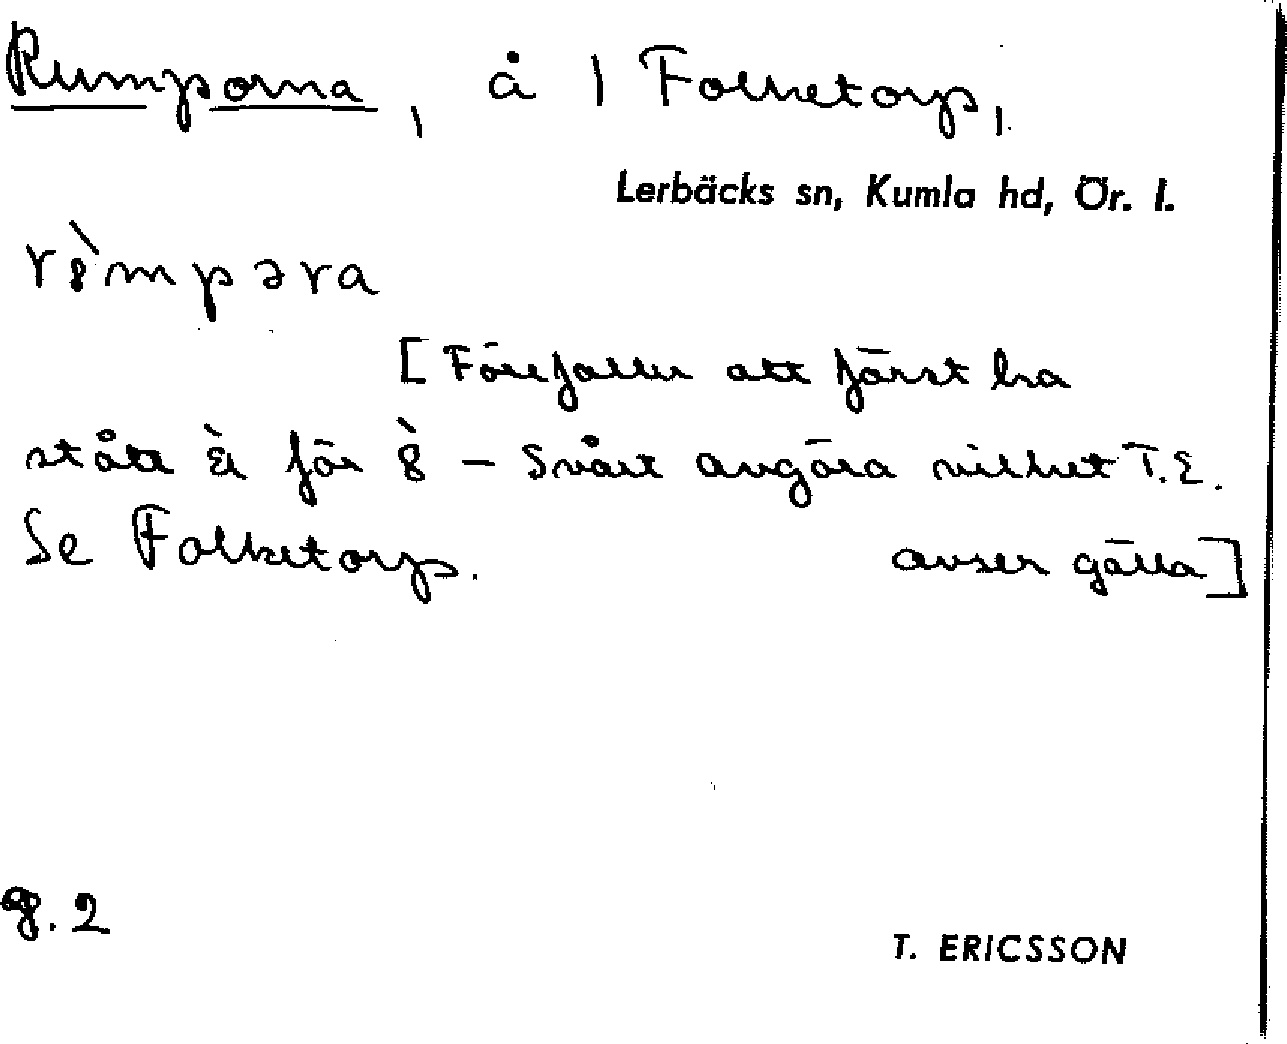 Rumporna, å i Folketorp,
Lerbäcks sn, Kumla hd, Ör. l.
r8̀mpəra
[Förefaller att först ha
stått ὲ för 8̀ – Svårt avgöra vilket T.E.
Se Folketorp. avser gälla]
g. 2
T. ERICSSON